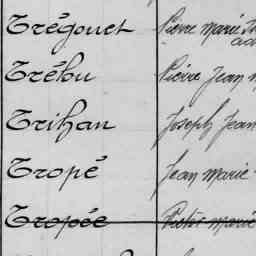 Trégouet Pierre marie
Trébu Pierre Jean m
Trihan Joseph Jean
Tropé Jean marie
Tropée Victor marie